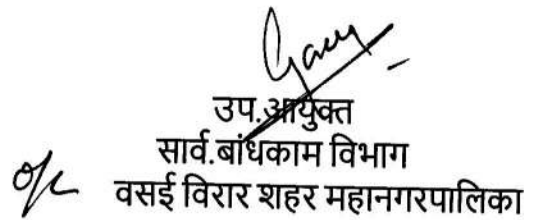 उप.आयुक्त
सार्व.बांधकाम विभाग
o/c वसई विरार शहर महानगरपालिका